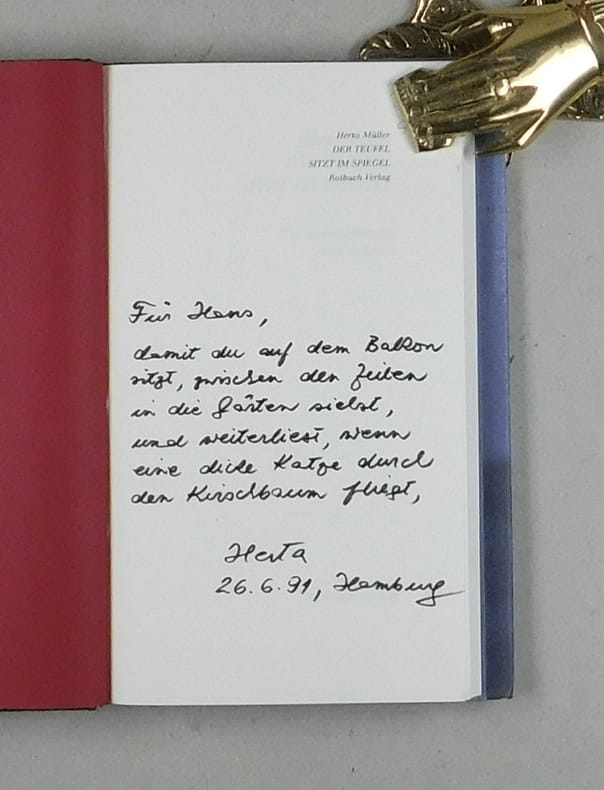 Herta Müller
DER TEUFEL
SITZT IM SPIEGEL
Rotbuch Verlag
Für Hans,
damit du auf dem Balkon
sitzt, zwischen den Zeilen
in die Gärten siehst,
und weiterliest, wenn
eine dicke Katze durch
den Kirschbaum fliegt,
Herta
26.6.91, Hamburg